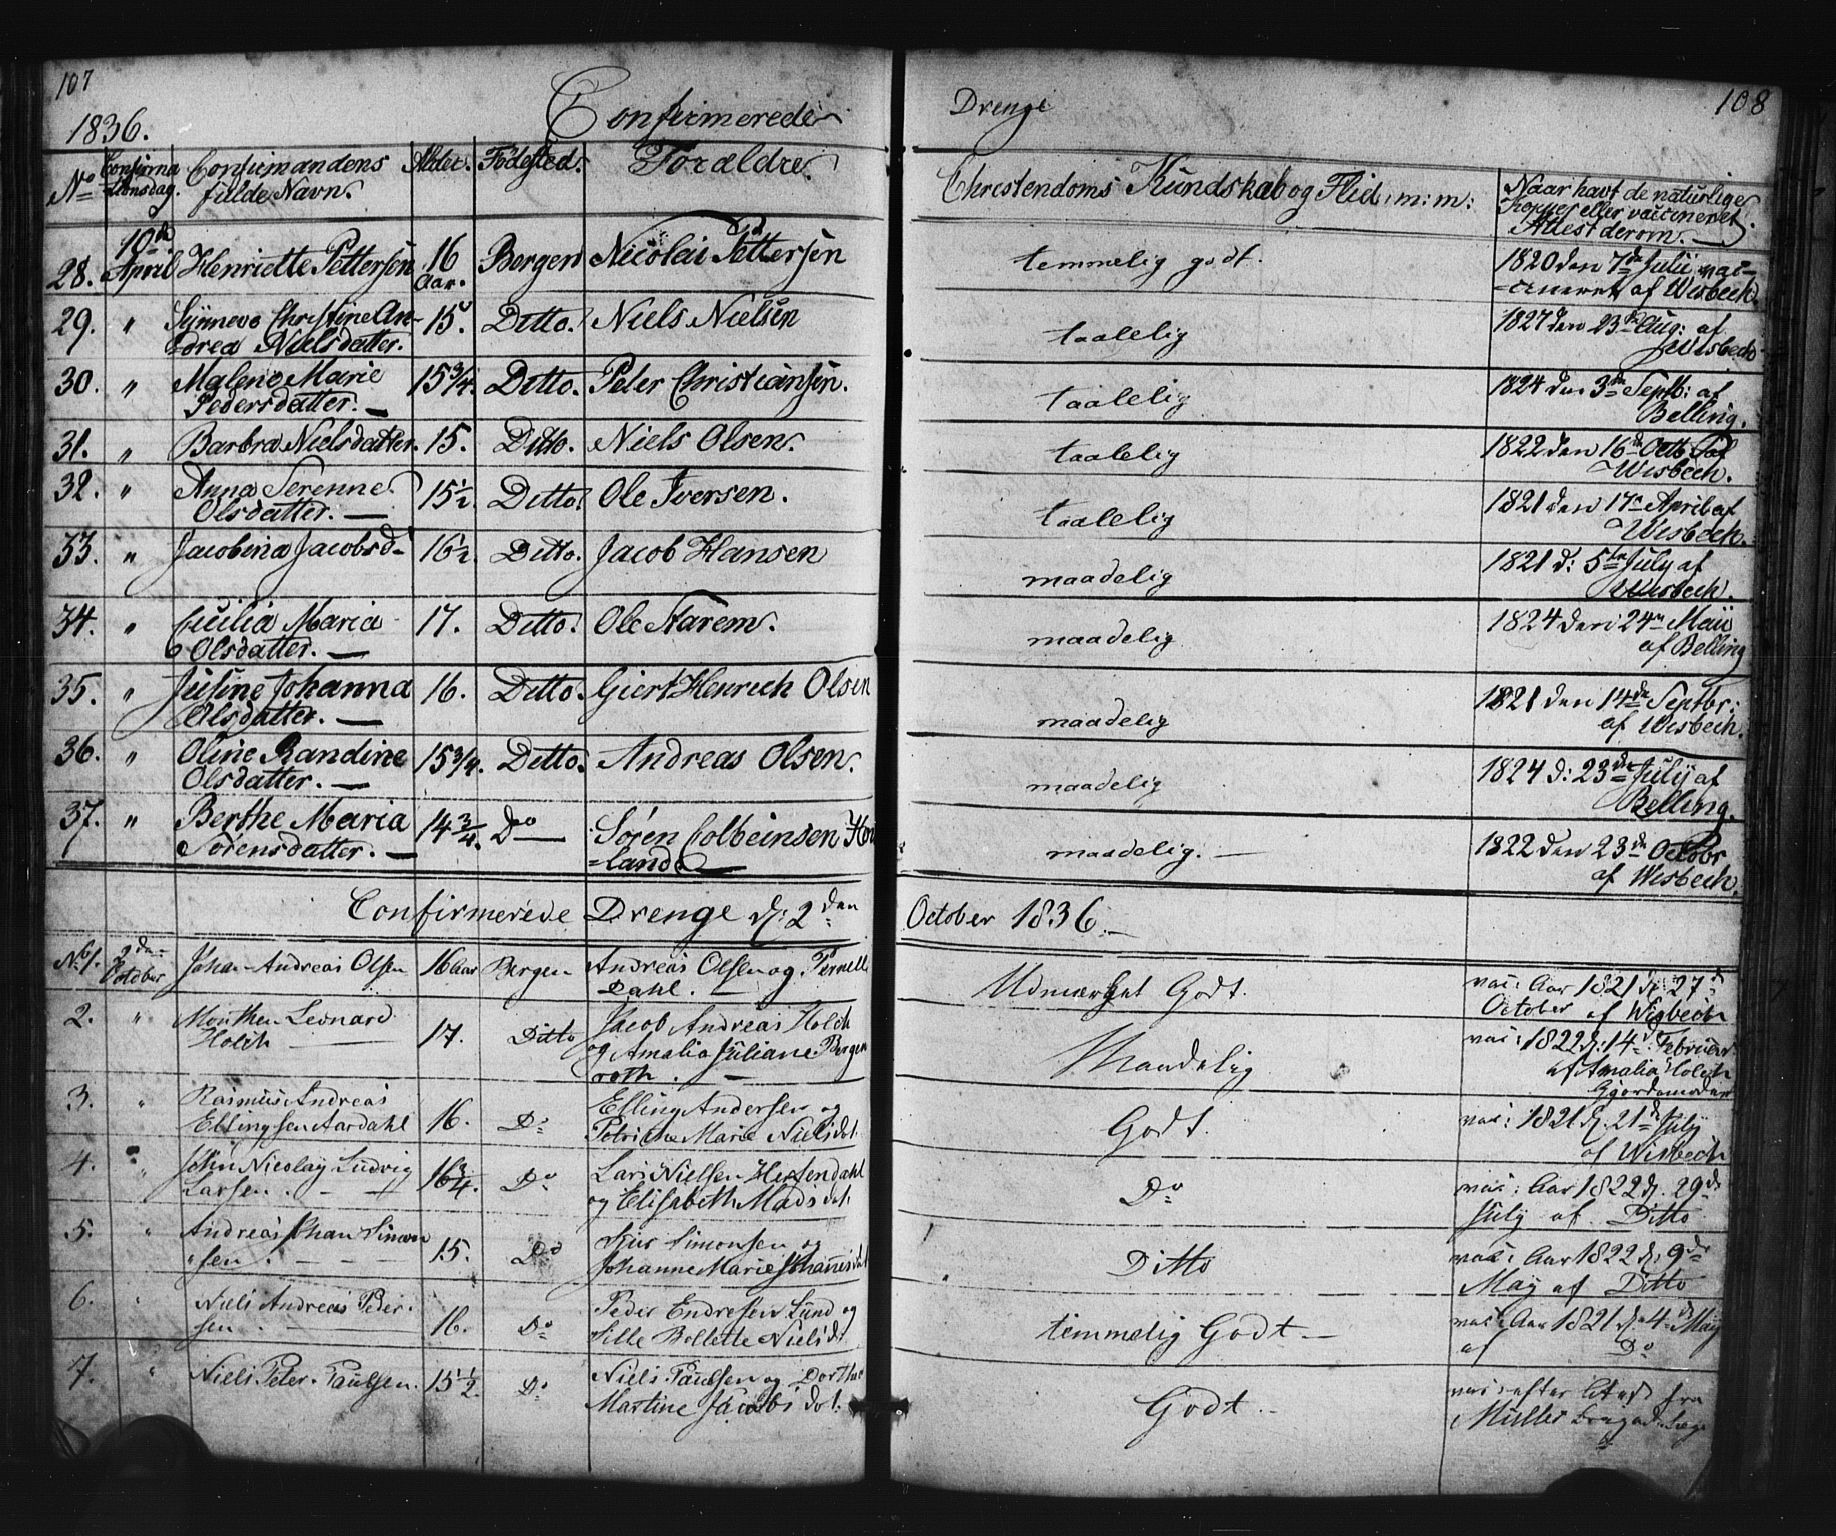 107
108
1836.
Confirmerede Drenge
No Confirmationsdag. Confirmandens fulde Navn. Alder. Födested. Forældre. Christendoms Kundskab og Flid, m: m: Naar havt de naturlige Kopper eller vaccineret Attest derom.
28. 10de April Henriette Pettersen 16 Aar. Bergen Nicolai Pettersen temmelig godt. 1820 den 7de Julii vac-
=cineret af Wisbech.
29. " Synneve Christine An- 15. Ditto. Niels Nielsen taalelig 1827 den 23de Aug: af
drea Nielsdatter. Wisbech
30. " Malene Marie 15 3/4. Ditto. Peter Christiansen. taalelig 1824 den 3de Septb: af
Pedersdatter. Belling.
31. " Barbra Nielsdatter. 15. Ditto. Niels Olsen. taalelig 1822 den 16de Octb af
Wisbech.
32. " Anna Serenne 15 1/2. Ditto. Ole Iversen. taalelig 1821 den 17n April af
Olsdatter. Wisbech.
33. " Jacobina Jacobsd. 16 1/2. Ditto. Jacob Hansen maadelig 1821 d: 5te July af
Wisbech.
34. " Cicilia Maria 17. Ditto. Ole Starem. maadelig 1824 den 24n Maii
Olsdatter. af Belling
35. " Juline Johanna 16. Ditto. Giert Henrich Olsen maadelig 1821 den 14de Septbr:
Olsdatter. af Wisbech.
36. " Oline Randine 15 3/4. Ditto. Andreas Olsen. maadelig 1824 d: 23de July af
Olsdatter. Belling.
37. " Berthe Maria 14 3/4. Do Sören Colbeinsen Hov
Sörensdatter. =land maadelig. 1822 den 23de Octobr
af Wisbech.
Confirmerede Drenge d: 2den October 1836.
No 1. 2den October Johan Andreas Olsen 16 Aar Bergen Andreas Olsen og Pernelle
Dahl. Udmærket Godt. vac: Aar 1821 d. 27d
October af Wisbech
2. " Mouthen Leonard 17. Ditto Jacob Andreas Holch
Holch og Amalia Juliane Bergen
roth. Maadelig vac: 1822 d: 14d Februar
af Amalia Holch
Gjordemoder
3. " Rasmus Andreas 16. Do Elling Andersen og
Ellingsen Aardahl Petriche Marie Nielsdat. Godt. vac: 1821 d. 21d July
af Wisbech
4. " John Nicolay Ludvig 16 3/4. Do Lars Nielsen Hestendahl
Larsen. og Elisabeth Madsdat. Do vac: Aar 1822 d. 29de
July af Ditto
5. " Andreas Johan Simon 15. Do Simonsen og
sen. Johanne Marie Johannesdat Ditto vac: Aar 1822 d. 9de
May af Ditto
6. " Niels Andreas Peder- 16. Do Peder Endresen Lund og
sen. Sille Bollette Nielsdt temmelig Godt. vac: Aar 1821 d. 4de May
af Do
7. " Niels Peter Paulsen. 15 1/2. Do Niels Paulsen og Dorthe
Martine Jacobsdat. Godt. vac: efter Attest fra
Müller